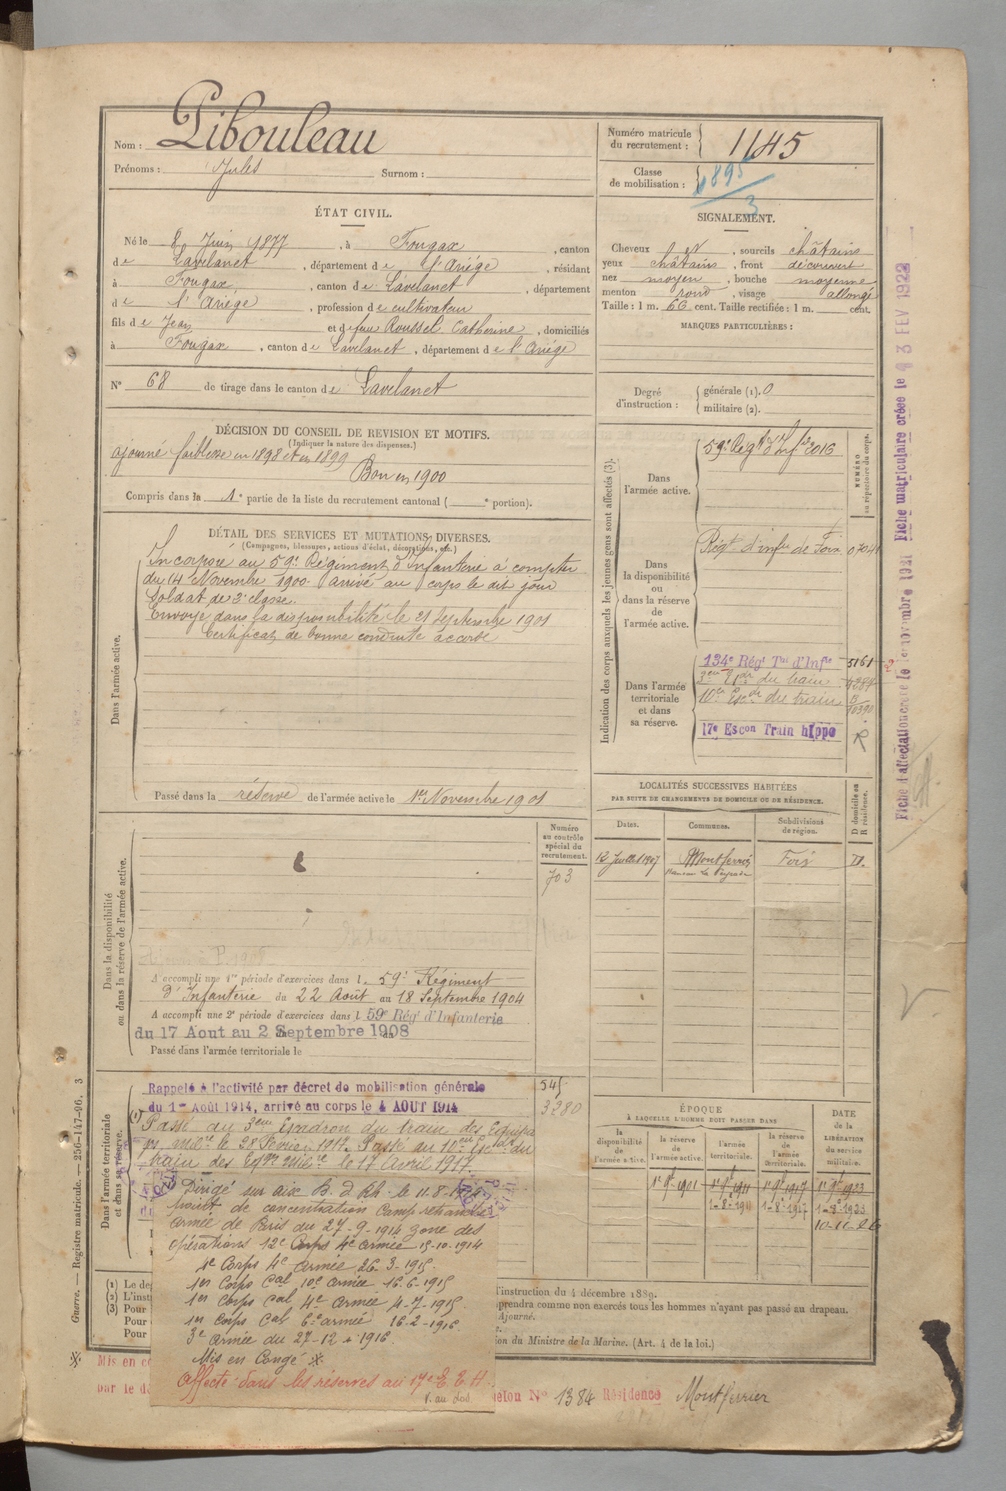 Nom : Pibouleau
Prénoms : Jules Surnom :
Numéro matricule du recrutement : 1145
Classe de mobilisation : 1895
3
ÉTAT CIVIL.
Né le 8 Juin 1877, à Fougax, canton
de Lavelanet, département de l'Ariége, résidant
à Fougax, canton de Lavelanet, département
de l'Ariége, profession de cultivateur
fils de Jean et de feu Roussel Catherine, domiciliés
à Fougax, canton de Lavelanet, département de l'Ariége
N° 68 de tirage dans le canton de Lavelanet
SIGNALEMENT.
Cheveux et, sourcils châtains
yeux châtains, front découvert
nez moyen, bouche moyenne
menton rond, visage allongé
Taille : 1 m. 66 cent. Taille rectifiée : 1 m. cent.
MARQUES PARTICULIÈRES :
Degré d'instruction : générale (1). 0
militaire (2).
DÉCISION DU CONSEIL DE REVISION ET MOTIFS.
(Indiquer la nature des dispenses.)
ajourné faiblesse en 1898 et en 1899
Bon en 1900
Compris dans la 1e partie de la liste du recrutement cantonal ( e portion).
DÉTAIL DES SERVICES ET MUTATIONS DIVERSES.
(Campagnes, blessures, actions d'éclat, décorations, etc.)
Dans l'armée active.
Incorporé au 59e Régiment d'Infanterie à compter
du 14 Novembre 1900. Arrivé au corps le dit jour
Soldat de 2e classe.
Envoyé dans la disponibilité le 21 Septembre 1901
Certificat de bonne conduite accordé
Passé dans la réserve de l'armée active le 1er Novembre 1901
Indication des corps auxquels les jeunes gens sont affectés (3).
NUMÉRO au répertoire du corps.
Dans l'armée active.
59e Régt d'Infie 2016
Dans la disponibilité ou dans la réserve de l'armée active.
Régt d'infie de Foix 07041
Dans l'armée territoriale et dans sa réserve.
134e Régt Tal d'Infie 5161
3em Esdr du train
10e Escdr du train
17e Escon Train hippo R
LOCALITÉS SUCCESSIVES HABITÉES
PAR SUITE DE CHANGEMENTS DE DOMICILE OU DE RÉSIDENCE.
Dates. Communes. Subdivisions de région. D domicile ou R résidence.
12 Juillet 1907 Montferrier Foix D.
Hameau La Peyrade
Numéro au contrôle spécial du recrutement.
703
Dans la disponibilité ou dans la réserve de l'armée active.
A accompli une 1re période d'exercices dans l. 59e Régiment
d'Infanterie du 22 Août au 18 Septembre 1904
A accompli une 2e période d'exercices dans l 59e Régt d'Infanterie
du 17 Aout au 2 Septembre 1908
Passé dans l'armée territoriale le
Dans l'armée territoriale et dans sa réserve.
Rappelé à l'activité par décret de mobilisation générale
du 1er Août 1914, arrivé au corps le 4 AOUT 1914
545
3280
Passé au 3em Escadron du train des Equipa
ges milre le 28 Février 1917. Passé au 10em Escdr du
train des Eqges milre le 17 Avril 1917.
Dirigé sur aix B. d Rh. le 11-8-1914
point de concentration Camp retranché
armée de Paris du 27-9-1914 zone des
opérations 12e Corps 4e armée 15-10-1914
4e Corps 4e armée 26-3-1915.
1er Corps Cal 10e armée 16-6-1915
1er Corps Cal 4e armée 4-7-1915
1er Corps Cal 6e armée 16-2-1916
3e armée du 27-12-1916
Mis en Congé *.
Affecté dans les réserves au 17e E. E. H.
V. au dos
ÉPOQUE
À LAQUELLE L'HOMME DOIT PASSER DANS
la disponibilité de l'armée active. la réserve de l'armée active. l'armée territoriale. la réserve de l'armée territoriale.
DATE de la LIBÉRATION du service militaire.
1er 9bre 1901 1er 9bre 1911 1er 9bre 1917 1er 9bre 1923
1-8-1911 1-8-1917
(1) Le de
(2) L'inst
(3) Pour
Pour
Pour
l'instruction du 4 décembre 1889.
prendra comme non exercés tous les hommes n'ayant pas passé au drapeau.
Ajourné.
on du Ministre de la Marine. (Art. 4 de la loi.)
* Mis en co
par le d
elon N° 1384 Résidence Montferrier
Guerre. — Registre matricule. — 256-147-96. 3
Fiche d'affectation créée le 1er novembre 1921 Fiche matriculaire créée le 3 FEV 1922